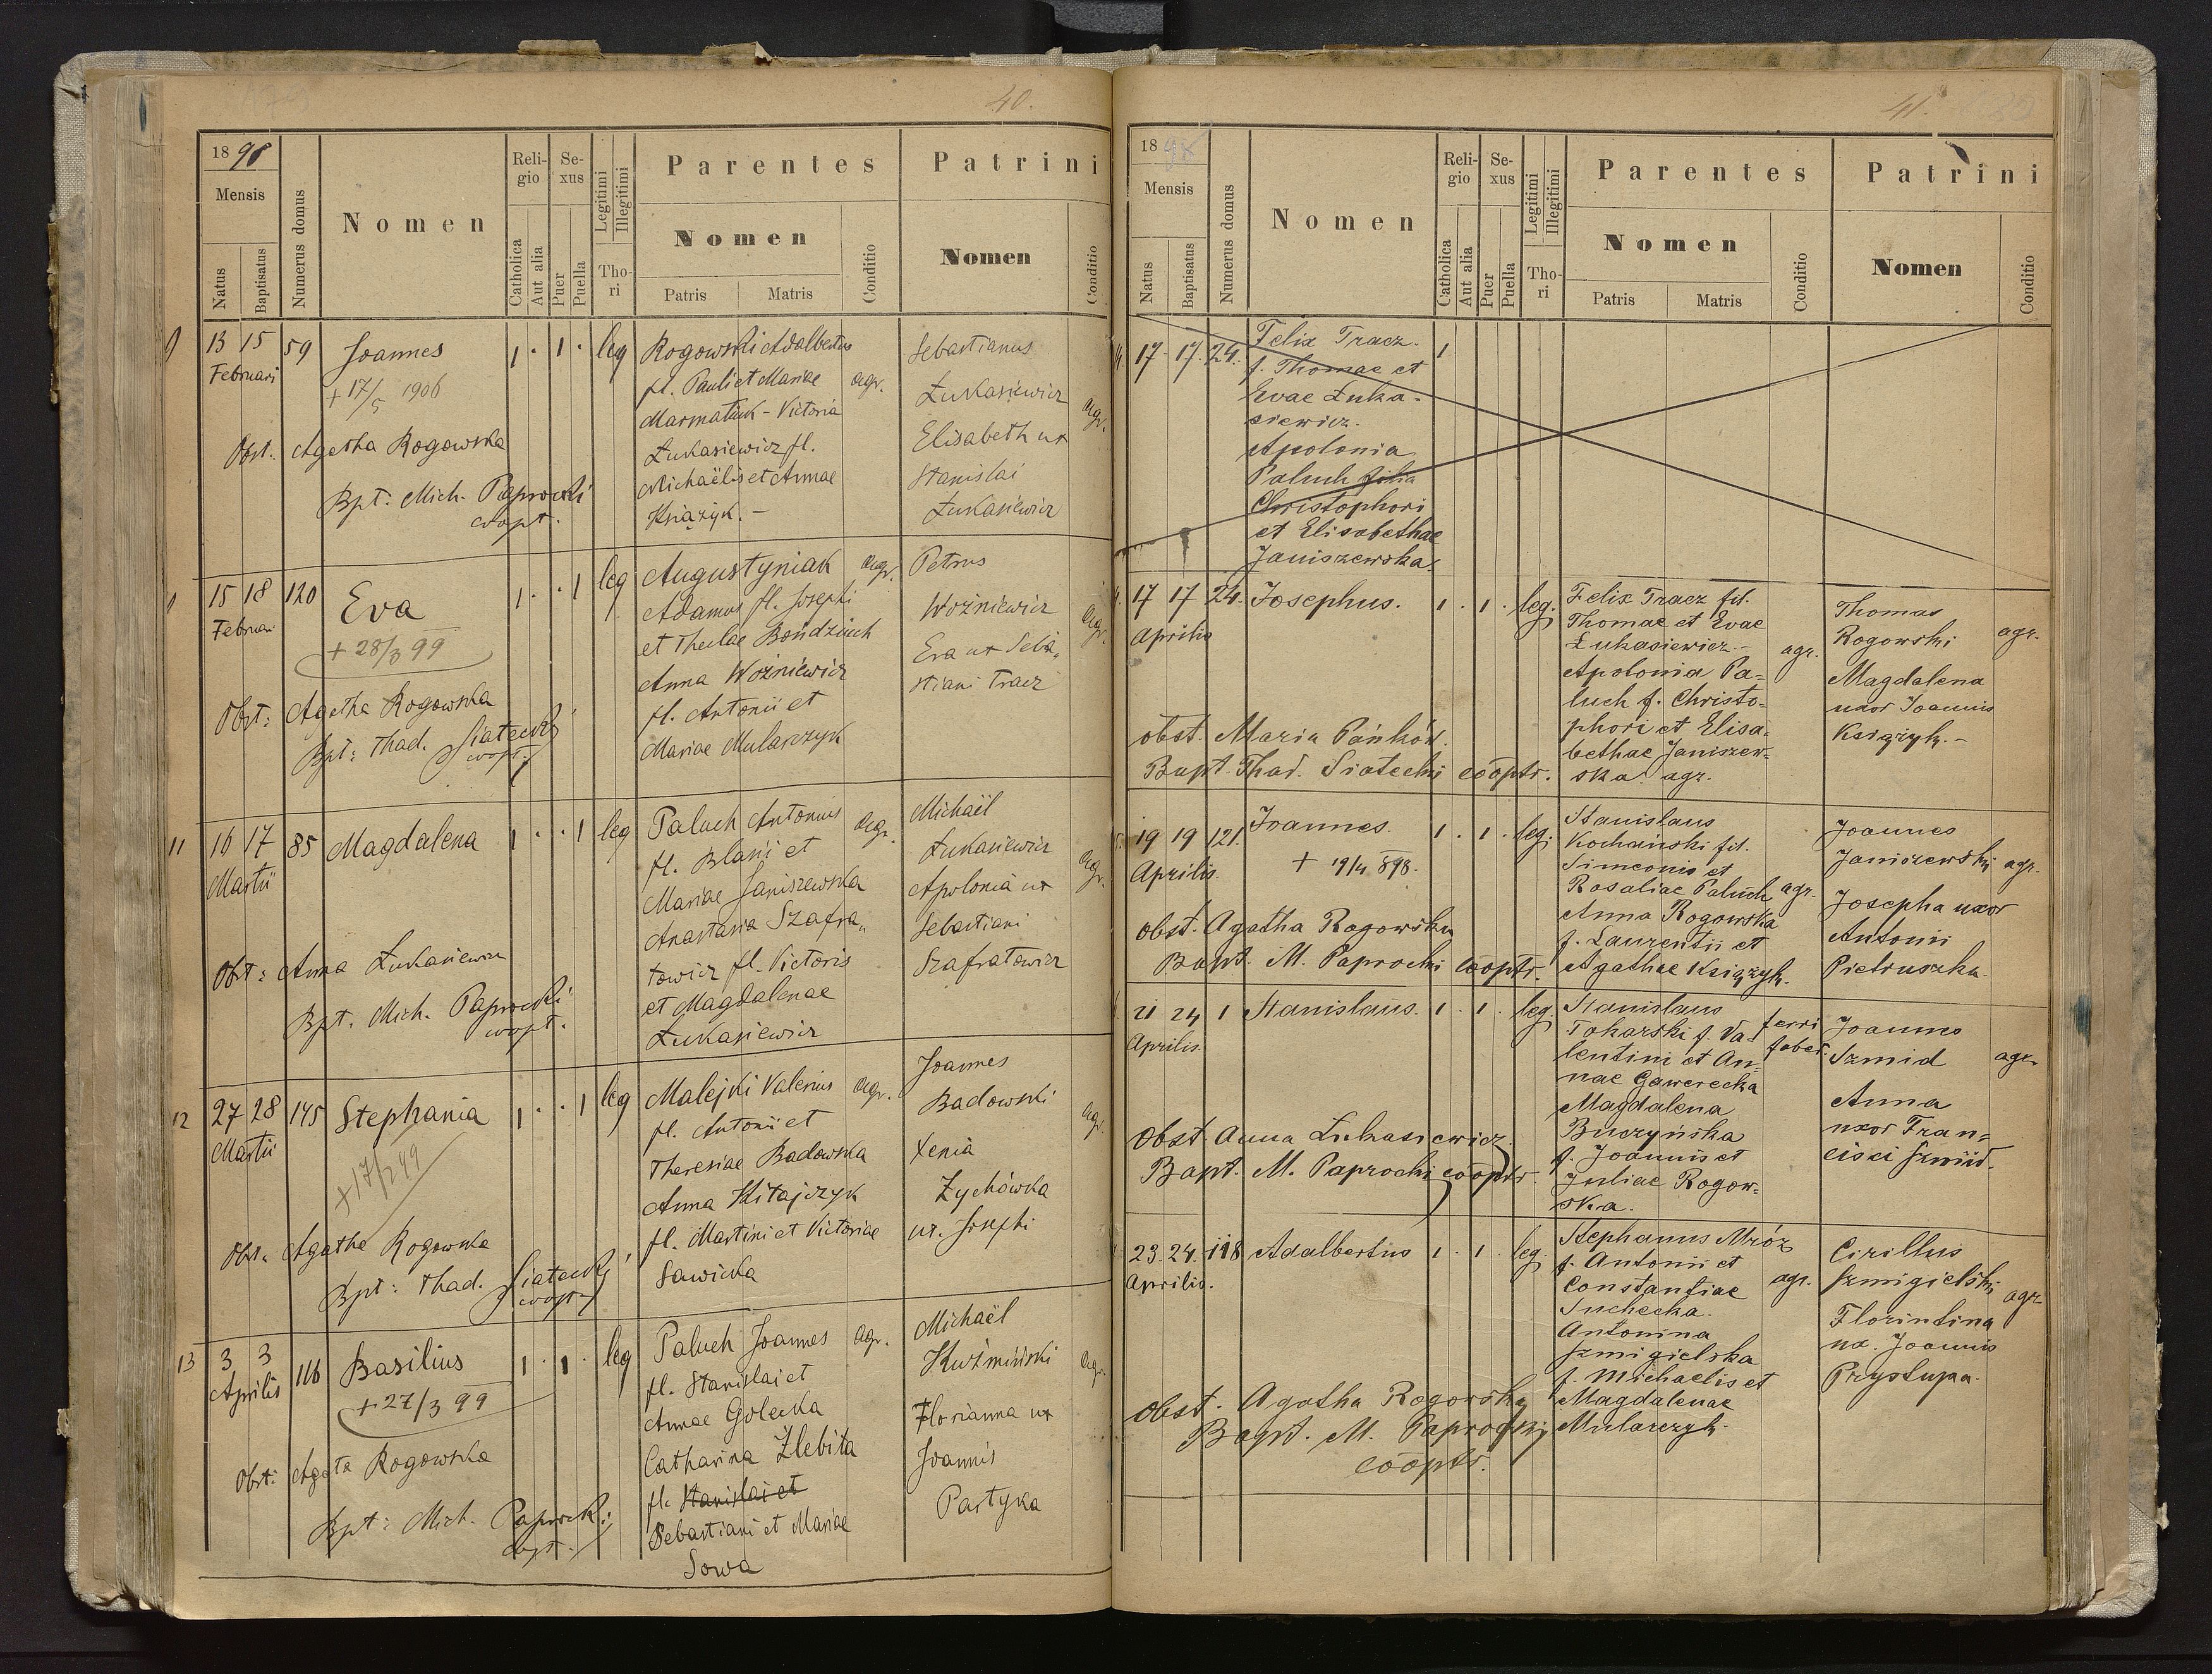 40.
1898
Mensis
Natus
Baptisatus
Numerus domus
Nomen
Religio
Catholica
Aut alia
Sexus
Puer
Puella
Legitimi
Illegitimi
Thori
Parentes
Nomen
Patris
Matris
Conditio
Patrini
Nomen
Conditio
9 13 15 59 Joannes 1 · 1 · leg Rogowski Adalbertus
Februari
+ 17/5 1906
fl. Pauli et Mariae agr.
Marmatiuk - Victoria
Łukasiewicz fl.
Michaëlis et Annae
Książyk. -
Sebastianus
Łukasiewicz agr.
Elisabeth ux
Stanislai
Łukasiewicz
Obst: Agatha Rogowska
Bpt: Mich. Paprocki
coopt.
15 18 120 Eva 1 · · 1 leg Augustyniak agr.
Februari
+ 28/3 99
Adamus fl. Josephi
et Theclae Bondziuch
Anna Woźniewicz
fl. Antonii et
Mariae Mularczyk
Petrus
Woźniewicz agr.
Eva ux Seba„
stiani Tracz
Obst: Agatha Rogowska
Bpt: Thad. Siatecki
coopt.
11 16 17 85 Magdalena 1 · · 1 leg Paluch Antonius agr.
Martii
fl. Blasii et
Mariae Janiszewska
Anastasia Szafra„
towicz fl. Victoris
et Magdalenae
Łukasiewicz
Michaël
Łukasiewicz agr.
Apolonia ux
Sebastiani
Szafratowicz
Obst: Anna Łukasiewicz
Bpt. Mich. Paprocki
coopt.
12 27 28 145 Stephania 1 · · 1 leg Malejki Valerius agr.
Martii
+ 17/2 99
fl. Antonii et
Theresiae Badowska
Anna Kitajczyk
fl. Martini et Victoriae
Sawicka
Joannes
Badowski agr.
Xenia
Zychówka
ux. Josephi
Obst. Agatha Rogowska
Bpt: Thad. Siatecki
coopt.
13 3 3 116 Basilius 1 · 1 · leg Paluch Joannes agr.
Aprilis
+ 27/3 99
fl. Stanislai et
Annae Golecka
Catharina Zlebita
fl. Stanislai et
Sebastiani et Mariae
Sowa
Michaël
Kuźmiński agr.
Florianna ux
Joannis
Partyka
Obst: Agata Rogowska
Bpt: Mich. Paprocki
coopt.
41.
1898
Mensis
Natus
Baptisatus
Numerus domus
Nomen
Religio
Catholica
Aut alia
Sexus
Puer
Puella
Legitimi
Illegitimi
Thori
Parentes
Nomen
Patris
Matris
Conditio
Patrini
Nomen
Conditio
17. 17. 24. Felix Tracz. 1
f. Thomae et
Evae Łuka-
siewicz.
Apolonia
Paluch filia
Christophori
et Elisabethae
Janiszewska.
17 17 24. Josephus. 1 · 1 · leg. Felix Tracz fil.
Aprilis
Thomae et Evae
Łukasiewicz.- agr.
Apolonia Pa=
luch f. Christo-
phori et Elisa-
bethae Janiszew-
ska. agr.
Thomas
Rogowski agr.
Magdalena
uxor Joannis
Książyk.-
obst. Maria Pańków.
Bapt. Thad. Siatecki cooptr.
19 19 121. Joannes. 1 · 1 · leg. Stanislaus
Aprilis.
+ 19/4 898.
Kochański fil.
Simeonis et
Rosaliae Paluch agr.
Anna Rogowska
f. Laurentii et
Agathae Książyk.
Joannes
Janiszewski agr.
Josepha uxor
Antonii
Pietruszka.
obst. Agatha Rogowska
Bapt. M. Paprocki cooptr.
21 24 1 Stanislaus. 1 · 1 · leg. Stanislaus
Aprilis.
Tokarski f. Va- ferri
lentini et An- faber.
nae Gawerecka
Magdalena
Buczyńska
f. Joannis et
Juliae Rogow=
ska.
Joannes
Szmid agr.
Anna
uxor Fran=
cisci Szmid.
Obst. Anna Łukasiewicz.
Bapt. M. Paprocki cooptr.
23. 24. 118 Adalbertus 1 · 1 · leg. Stephanus Mróz
Aprilis.
f. Antonii et
Constantiae agr.
Suchecka.
Antonina
Szmigielska
f. Michaelis et
Magdalenae
Mularczyk.
Cirillus
Szmigielski agr.
Florentina
ux. Joannis
Prystupa.
obst. Agatha Rogowska
Bapt. M. Paprocki
cooptr.